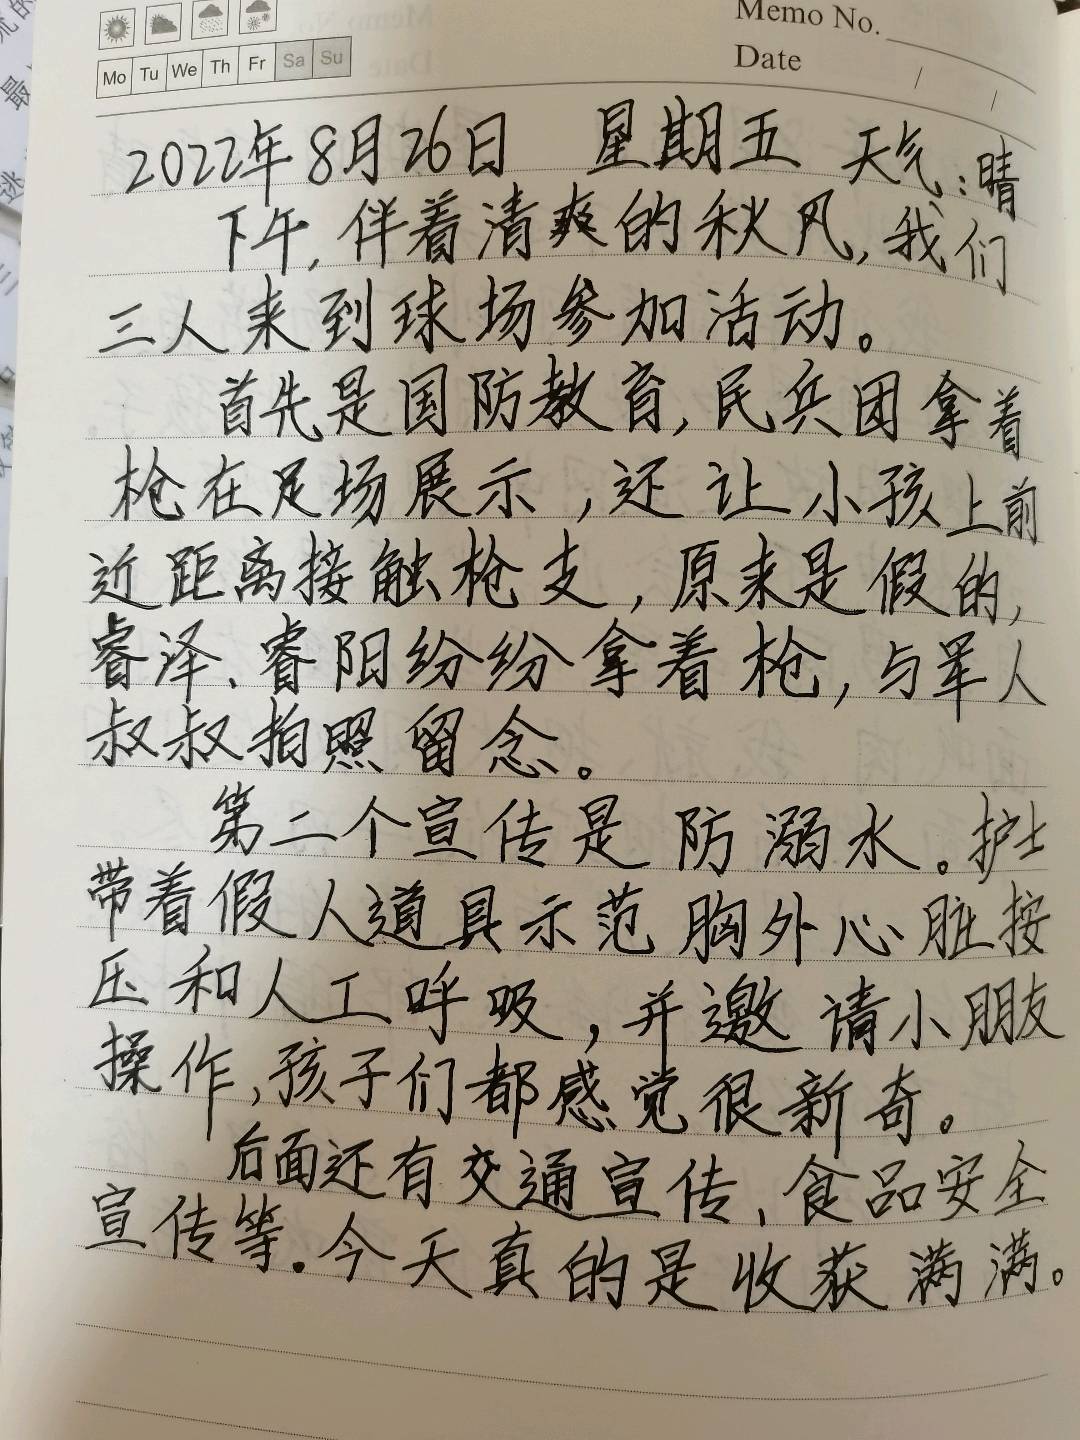 Memo No.
Mo Tu We Th Fr Sa Su
Date / /
2022年8月26日 星期五 天气:晴
下午,伴着清爽的秋风,我们
三人来到球场参加活动。
首先是国防教育,民兵团拿着
枪在足场展示,还让小孩上前
近距离接触枪支,原来是假的,
睿泽、睿阳纷纷拿着枪,与军人
叔叔拍照留念。
第二个宣传是防溺水。护士
带着假人道具示范胸外心脏按
压和人工呼吸,并邀请小朋友
操作,孩子们都感觉很新奇。
后面还有交通宣传,食品安全
宣传等。今天真的是收获满满。